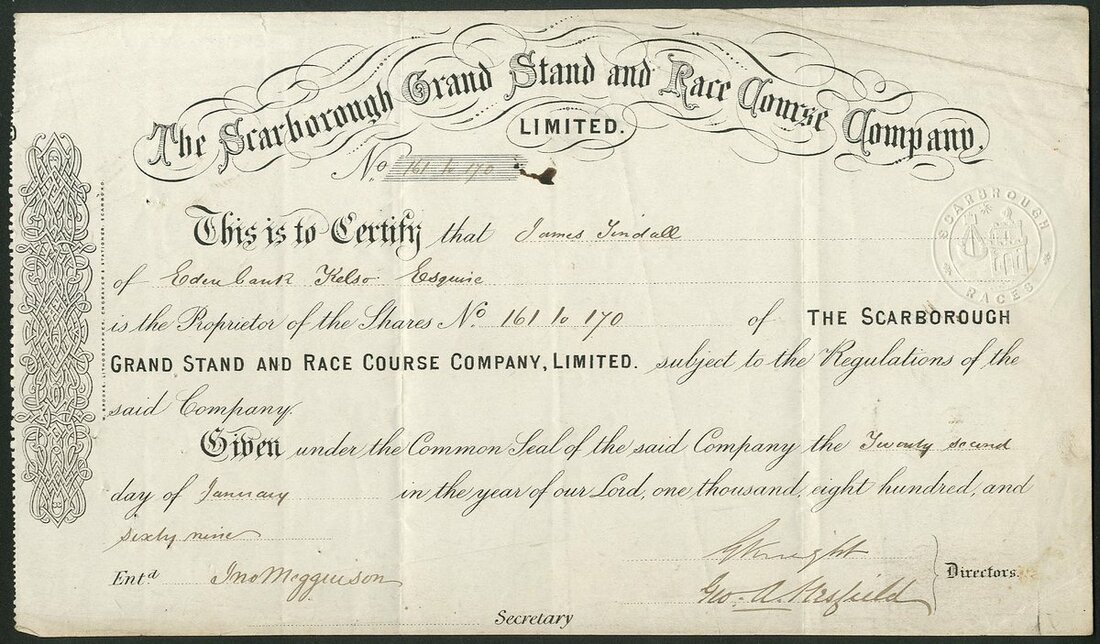 The Scarborough Grand Stand and Race Course Company,
LIMITED.
No. 161 to 170
This is to Certify that James Tindall
of Eden bank Kelso Esquire
is the Proprietor of the Shares No. 161 to 170 of THE SCARBOROUGH
GRAND STAND AND RACE COURSE COMPANY, LIMITED. subject to the Regulations of the
said Company.
Given under the Common Seal of the said Company the Twenty second
day of January in the year of our Lord, one thousand, eight hundred, and
sixty nine
Knight
Entd. Jno Megginson
Geo. A. Directors.
Secretary
SCARBROUGH RACES
BROOKE, LITHOGRAPHER, ENGRAVER & STATIONER, SCARBRO